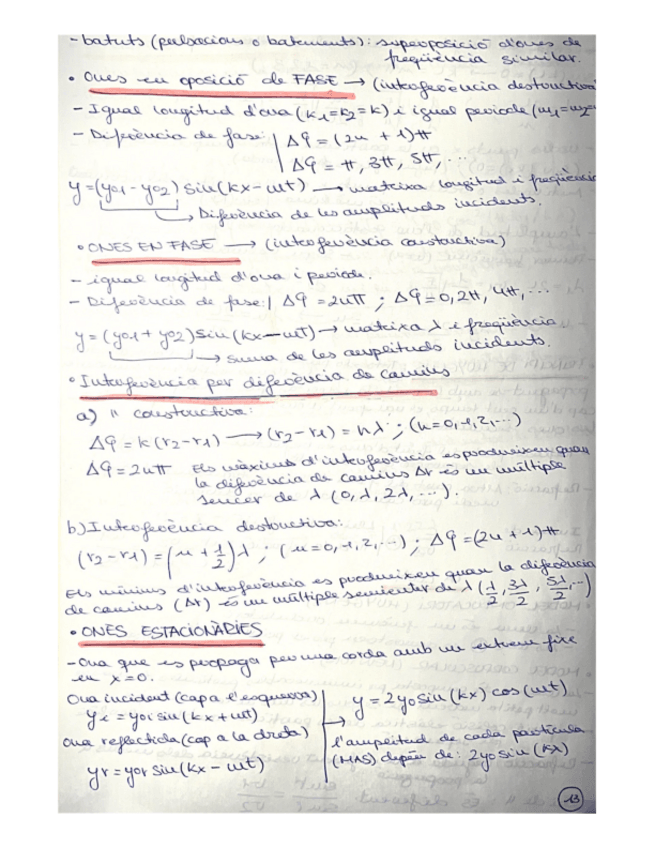 - batuts (pulsacions o batements): superposició d'ones de
freqüència similar.
• Ones en oposició de FASE → (interferència destructiva)
- Igual longitud d'ona (k1=k2=k) i igual període (ω1=ω2=
- Diferència de fase: | Δφ = (2n + 1)π
| Δφ = π, 3π, 5π, ...
y = (y01 - y02) sin(kx - ωt) → mateixa longitud i freqüència
→ Diferència de les amplituds incidents.
• ONES EN FASE → (interferència constructiva)
- igual longitud d'ona i període.
- Diferència de fase: | Δφ = 2nπ ; Δφ = 0, 2π, 4π, ...
y = (y01 + y02) sin(kx - ωt) → mateixa λ i freqüència
→ suma de les amplituds incidents.
• Interferència per diferència de camins
a) " constructiva:
Δφ = k(r2-r1) → (r2-r1) = nλ ; (n=0,1,2,...)
Δφ = 2nπ Els màxims d'interferència es produeixen quan
la diferència de camins Δr és un múltiple
sencer de λ (0, λ, 2λ, ...).
b) Interferència destructiva:
(r2-r1) = (n + 1/2) λ ; (n=0,1,2,...) ; Δφ = (2n+1)π
Els mínims d'interferència es produeixen quan la diferència
de camins (Δr) és un múltiple semienter de λ (λ/2, 3λ/2, 5λ/2, ...)
• ONES ESTACIONÀRIES
- Ona que es propaga per una corda amb un extrem fixe
en x=0.
Ona incident (cap a l'esquerra)
yi = y0i sin(kx + ωt)
Ona reflectida (cap a la dreta)
yr = y0r sin(kx - ωt)
→ y = 2y0 sin(kx) cos(ωt)
l'amplitud de cada partícula
(MAS) depèn de: 2y0 sin(kx)
13